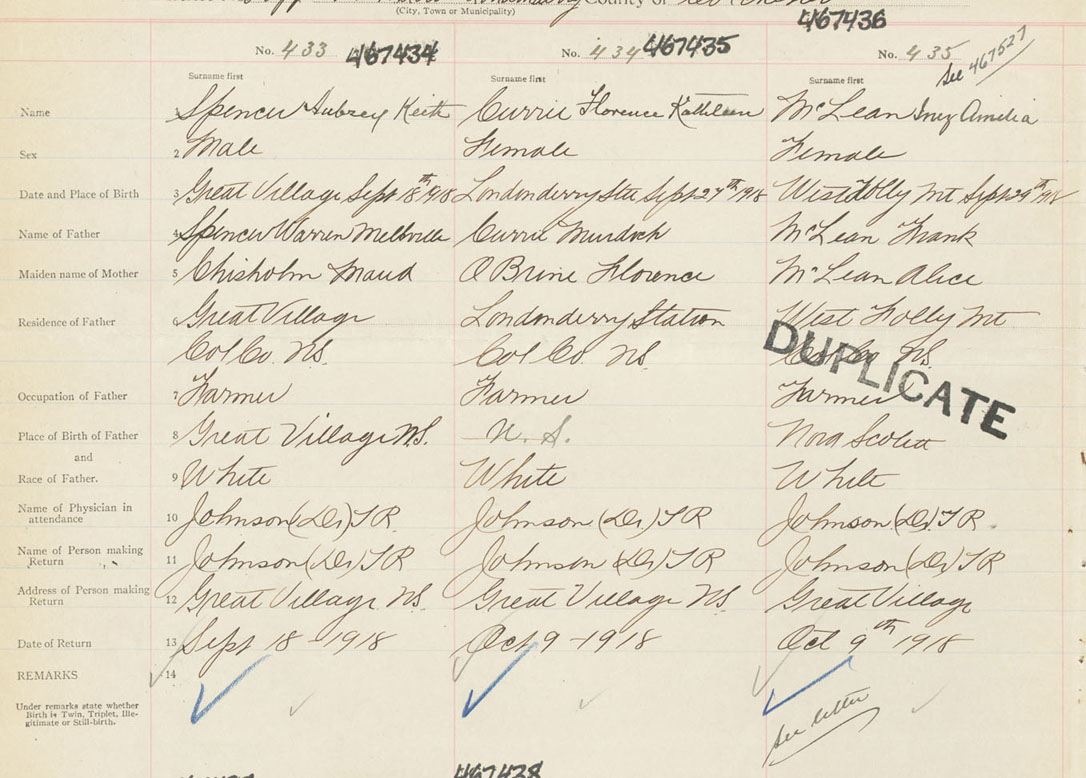 County of
(City, Town or Municipality)
467436
No. 433 467434 No. 434 467435 No. 435 See 467527
Surname first Surname first Surname first
Name 1 Spencer Aubrey Keith Currie Florence Kathleen McLean Inez Amelia
Sex 2 Male Female Female
Date and Place of Birth 3 Great Village Sept 18th 1918 Londonderry Sta Sept 27th 1918 West Folly Mt Sept 29th 1918
Name of Father 4 Spencer Warren Mellville Currie Murdoch McLean Frank
Maiden name of Mother 5 Chisholm Maud O Brine Florence McLean Alice
Residence of Father 6 Great Village Londonderry Station West Folly Mt
Col Co. N.S. Col Co. N.S. Col Co N.S.
DUPLICATE
Occupation of Father 7 Farmer Farmer Farmer
Place of Birth of Father 8 Great Village N.S. N. S. Nova Scotia
and
Race of Father. 9 White White White
Name of Physician in
attendance 10 Johnson (Dr) T R Johnson (Dr) T R Johnson (Dr) T R
Name of Person making
Return 11 Johnson (Dr) T R Johnson (Dr) T R Johnson (Dr) T R
Address of Person making
Return 12 Great Village N.S. Great Village N.S. Great Village
Date of Return 13 Sept 18 - 1918 Oct 9 - 1918 Oct 9th 1918
REMARKS 14
Under remarks state whether
Birth is Twin, Triplet, Ille-
gitimate or Still-birth.
See letter
467438